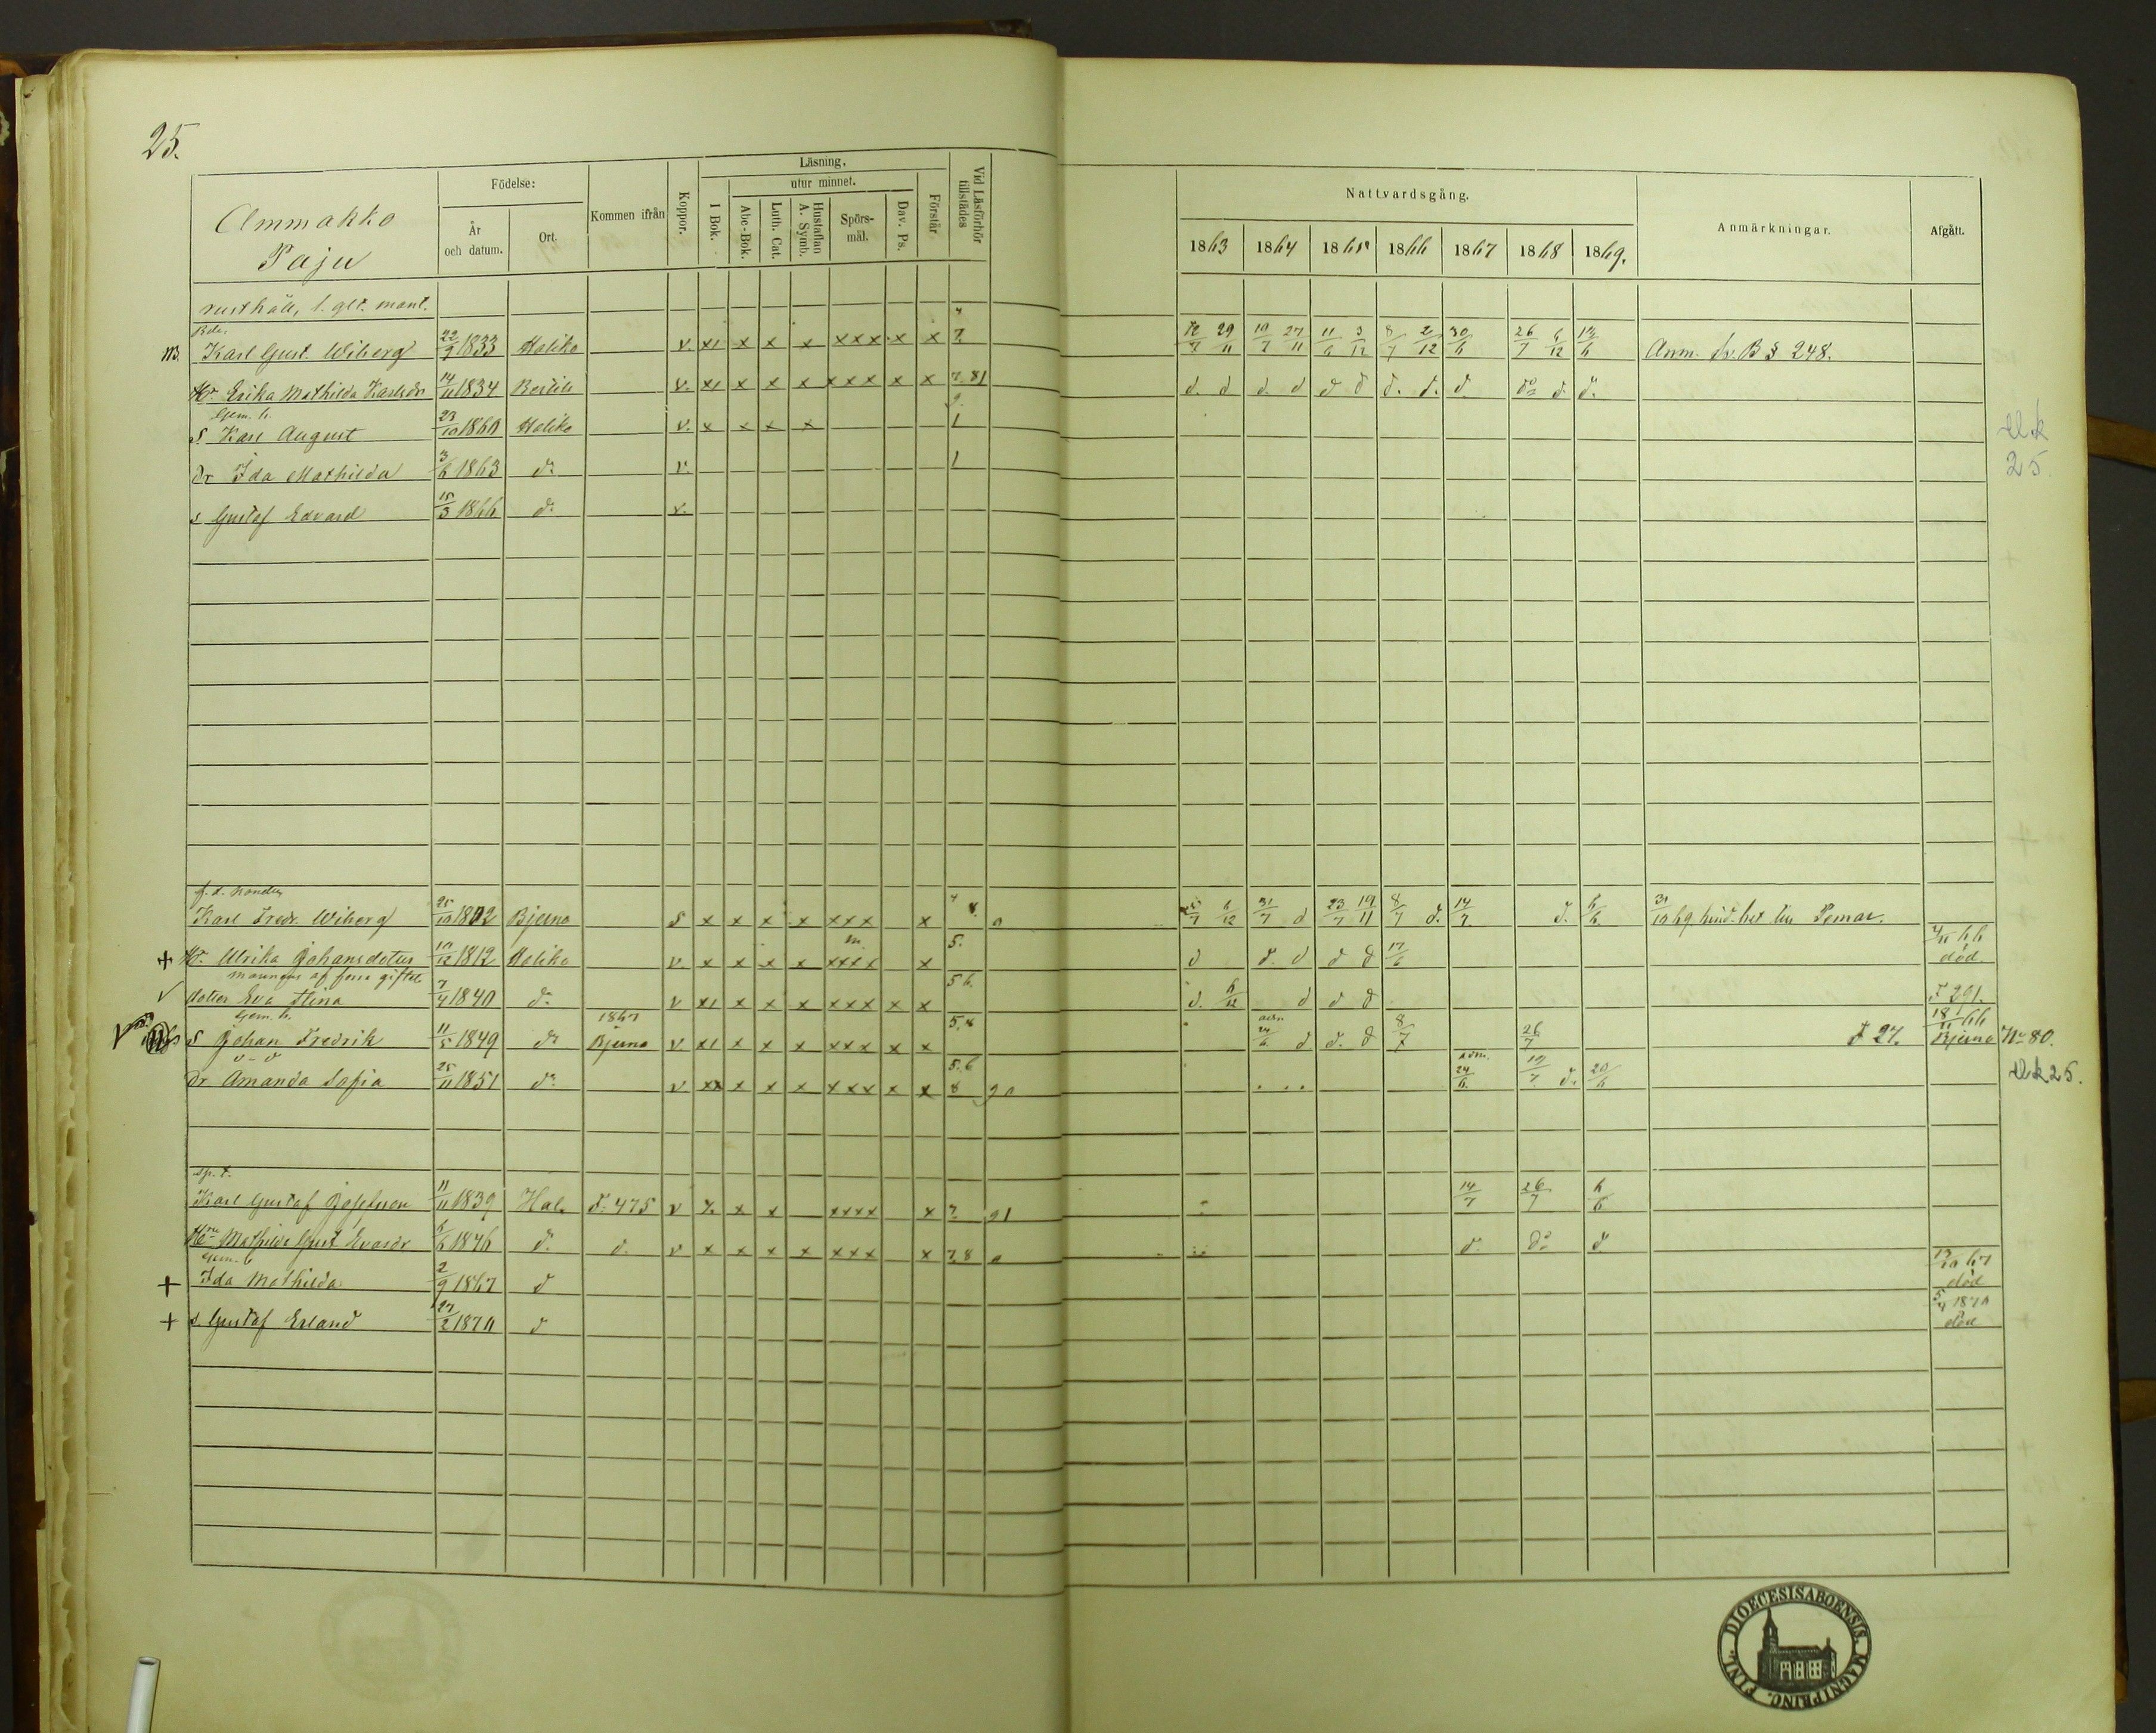 25.
Ammakko
Paju
Födelse:
År och datum.
Ort.
Kommen ifrån
Koppor.
Läsning.
utur minnet.
I Bok.
Abc-Bok.
Luth. Cat.
Hustaflan A. Symb.
Spörs-mål.
Dav. Ps.
Förstår
Vid Läsförhör tillstädes
Nattvardsgång.
1863 1864 1865 1866 1867 1868 1869.
Anmärkningar.
Afgått.
rusthåll, 1. glt. mant.
Bde.
Karl Gust. Wiberg 22/9 1833 Haliko v. x1 x x x xxx x x 7 12/7 29/11 19/7 27/11 11/6 3/12 8/7 2/12 30/6 26/7 6/12 13/6 Anm. Kv. B § 248.
Hr. Erika Mathilda Karlsdr 14/11 1834 Bertila v. x1 x x x xxx x x 7.81 d. d d. d d d d. d. d do d. d.
Gem. b.
S. Karl August 23/10 1860 Haliko v. x x x x 1
dr Ida Mathilda 3/6 1863 do v. 1
s Gustaf Edvard 15/3 1866 do v.
Uk
25.
f. d. bonden
Karl Fredr. Wiberg 25/10 1802 Bjerno S x x x x xxx x 8. a 5/7 6/12 31/7 d 23/7 19/11 8/7 d. 14/7. d. 6/6. 31/10 69 hind. bet. till Pemar.
+ Hr. Ulrika Johansdotter 10/12 1812 Haliko v. x x x x xxxx x 5. d d. d d d 17/6 död.
dotter Eva Stina 7/4 1840 do v x1 x x x xxx x x 56. d. 6/12 d d d F 291.
Gem. b.
S Johan Fredrik 11/5 1849 do 1867 Bjerno v x1 x x x xxx x x 5.8 adm. 24/6 d d. d 8/7 26/7 F 27. 18/11 66 Bjerno No 80.
Dr Amanda Sofia 25/11 1851 do v xx x x x xxx x x 5.6 8 90 adm. 24/6. 19/7 d. 20/6 Uk 25.
sp. t.
Karl Gustaf Josefsson 11/11 1839 Hal. F. 475 v x. x x xxxx x 7. 91 14/7 26/7 6/6
Hru Mathilda Gust. Evasdr 6/6 1846 d. d. v x x x x xxx x 7.8 a d. do d
Gem. b
+ Ida Mathilda 2/9 1867 d 13/10 67 död
+ s. Gustaf Erland 27/2 1870 d 5/4 1870 död
DIOECESIS ABOENSIS. MAGNI PRINC. FINL.